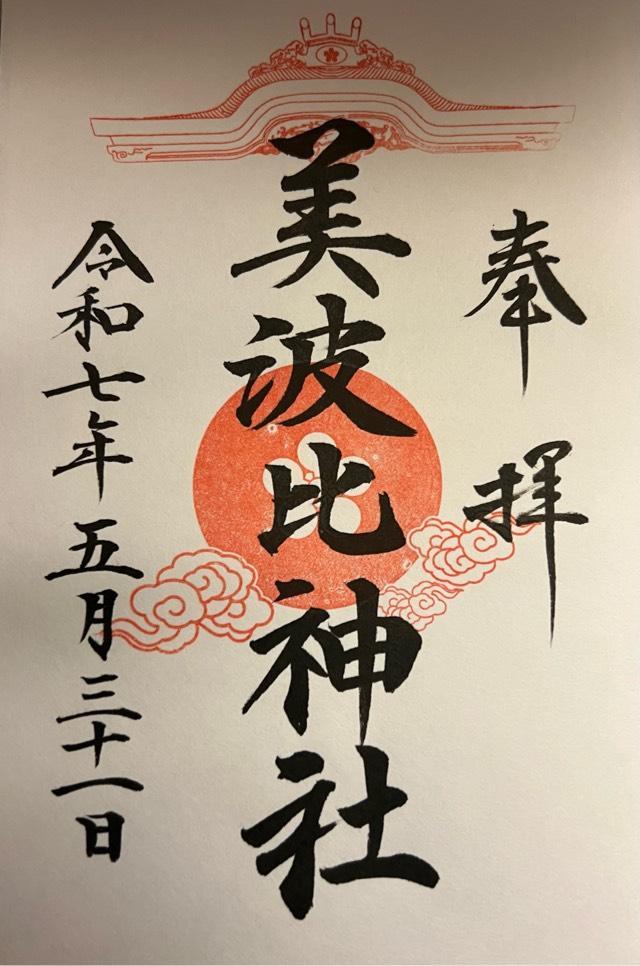 奉拝
美波比神社
令和七年五月三十一日